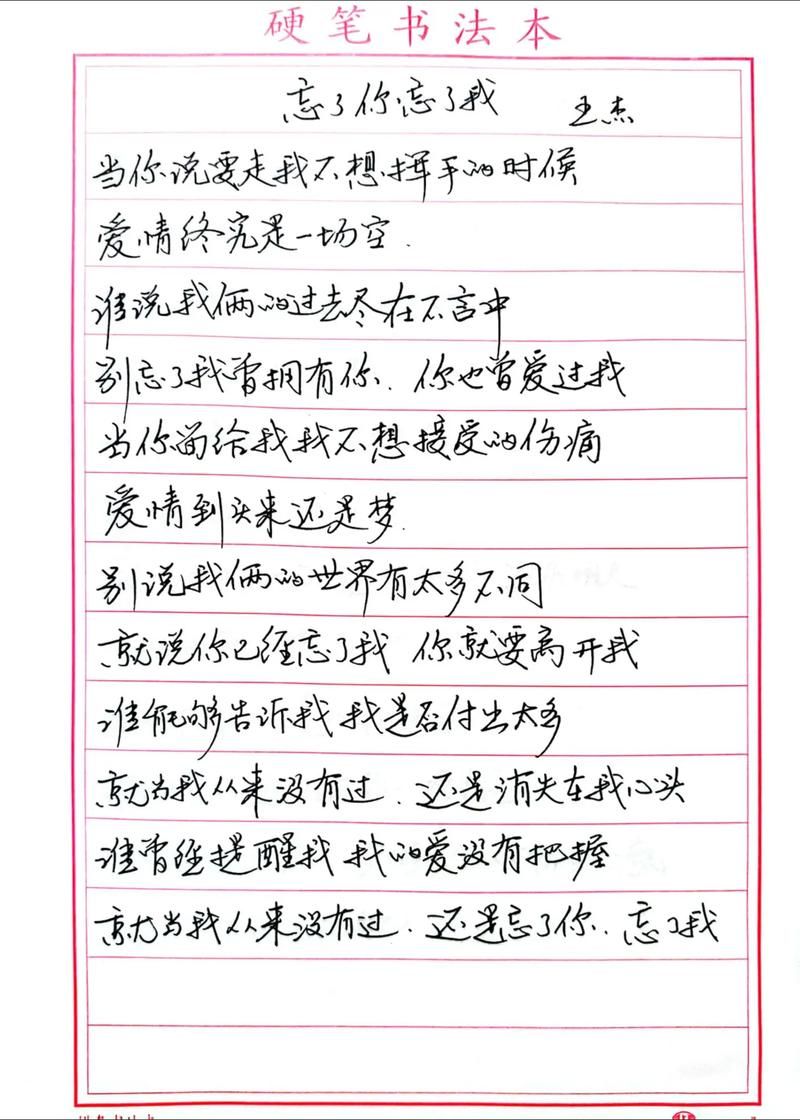 硬笔书法本
忘了你忘了我 王杰
当你说要走我不想挥手的时候
爱情终究是一场空.
谁说我俩的过去尽在不言中
别忘了我曾拥有你.你也曾爱过我
当你留给我我不想接受的伤痛
爱情到头来还是梦.
别说我俩的世界有太多不同
就说你已经忘了我 你就要离开我
谁能够告诉我 我是否付出太多
就当我从来没有过.还是消失在我心头
谁曾经提醒我 我的爱没有把握
就当我从来没有过.还是忘了你.忘了我